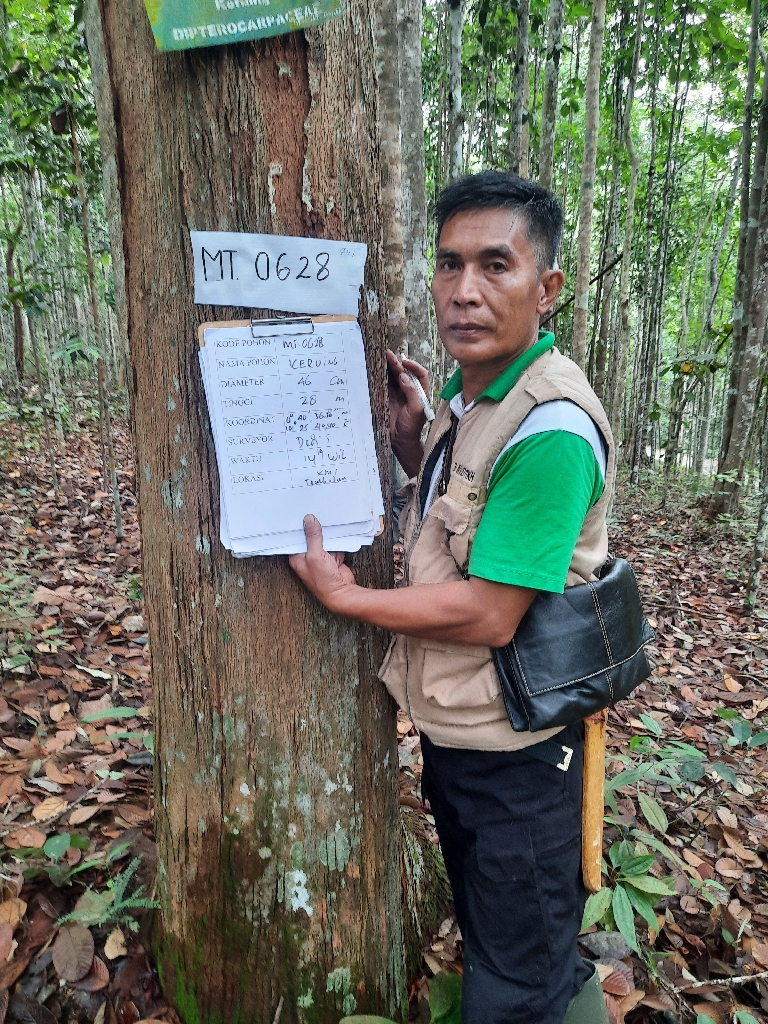 DIPTEROCARPACEAE
MT. 0628
KODE POHON MT.0628
NAMA POHON KERUING
DIAMETER 46 Cm
TINGGI 28 m
KOORDINAT
SURVEYOR
WAKTU 14 19 Wib
LOKASI KM 1